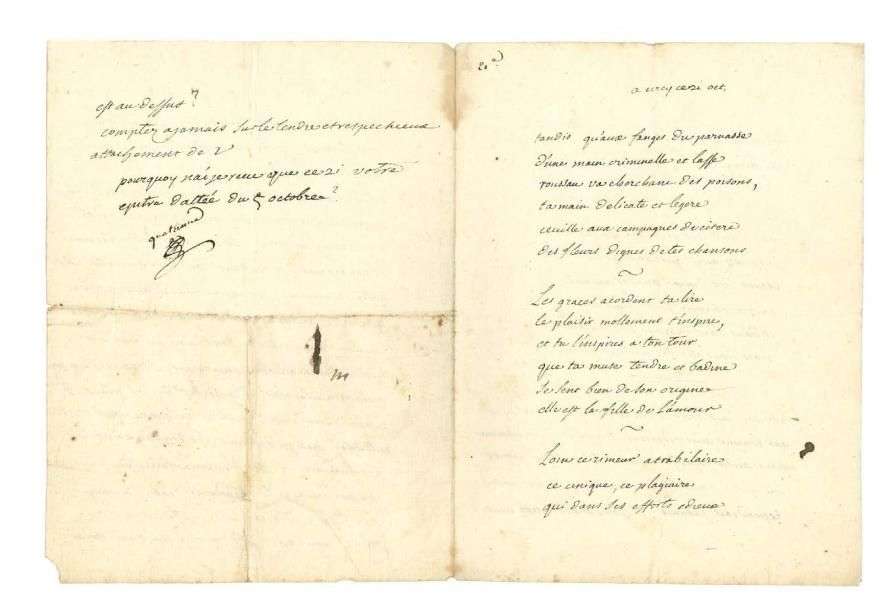 est au dessus?
comptez ajamais sur le tendre et respectueux
attachement de V
pourquoy n'ai je receu que ce 21 votre
epitre dattée du 5 octobre?
2e
a cirey ce 21 oct.
tandis qu'aux fanges du parnasse
d'une main criminelle et lasse
roussau va cherchant des poisons,
ta main delicate et legere
ceuille aux campagnes de citere
des fleurs dignes de tes chansons
~
Les graces acordent ta lire
le plaisir mollement t'inspire,
et tu l'inspires a ton tour
que ta muse tendre et badine
se sent bien de son origine
elle est la fille de l'amour
~
Loin ce rimeur atrabilaire
ce cinique, ce plagiaire
qui dans ses efforts odieux